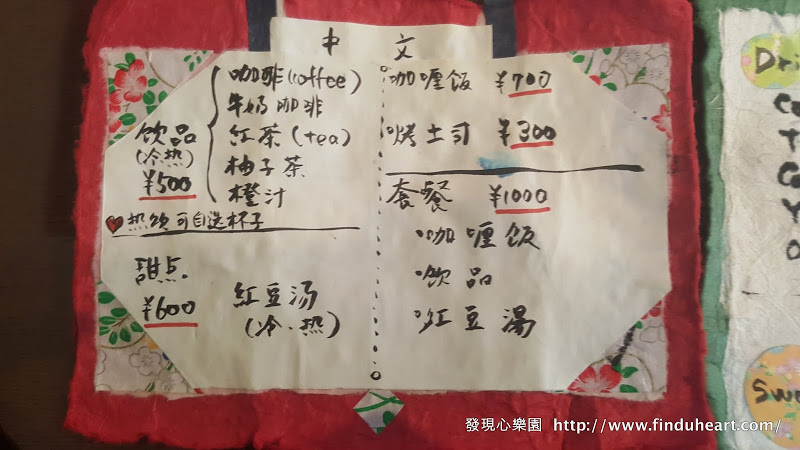 中 文
咖啡(coffee)
牛奶咖啡
紅茶(tea)
柚子茶
橙汁
饮品
(冷热)
¥500
热饮可自选杯子
甜点.
¥600
紅豆汤
(冷·热)
咖喱饭 ¥700
烤土司 ¥300
套餐 ¥1000
咖喱饭
饮品
紅豆湯
Dri
Swe
發現心樂園 http://www.finduheart.com/